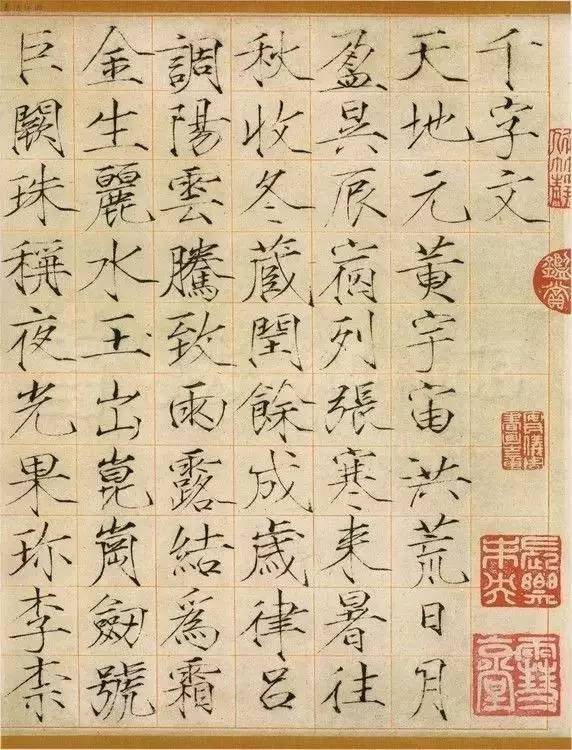 千字文
天地元黄宇宙洪荒日月
盈昃辰宿列張寒来暑往
秋收冬蔵閏餘成歲律吕
調陽雲騰致雨露結爲霜
金生麗水玉出崑崗劒號
巨闕珠稱夜光果珎李柰
鑑賞
長樂未央